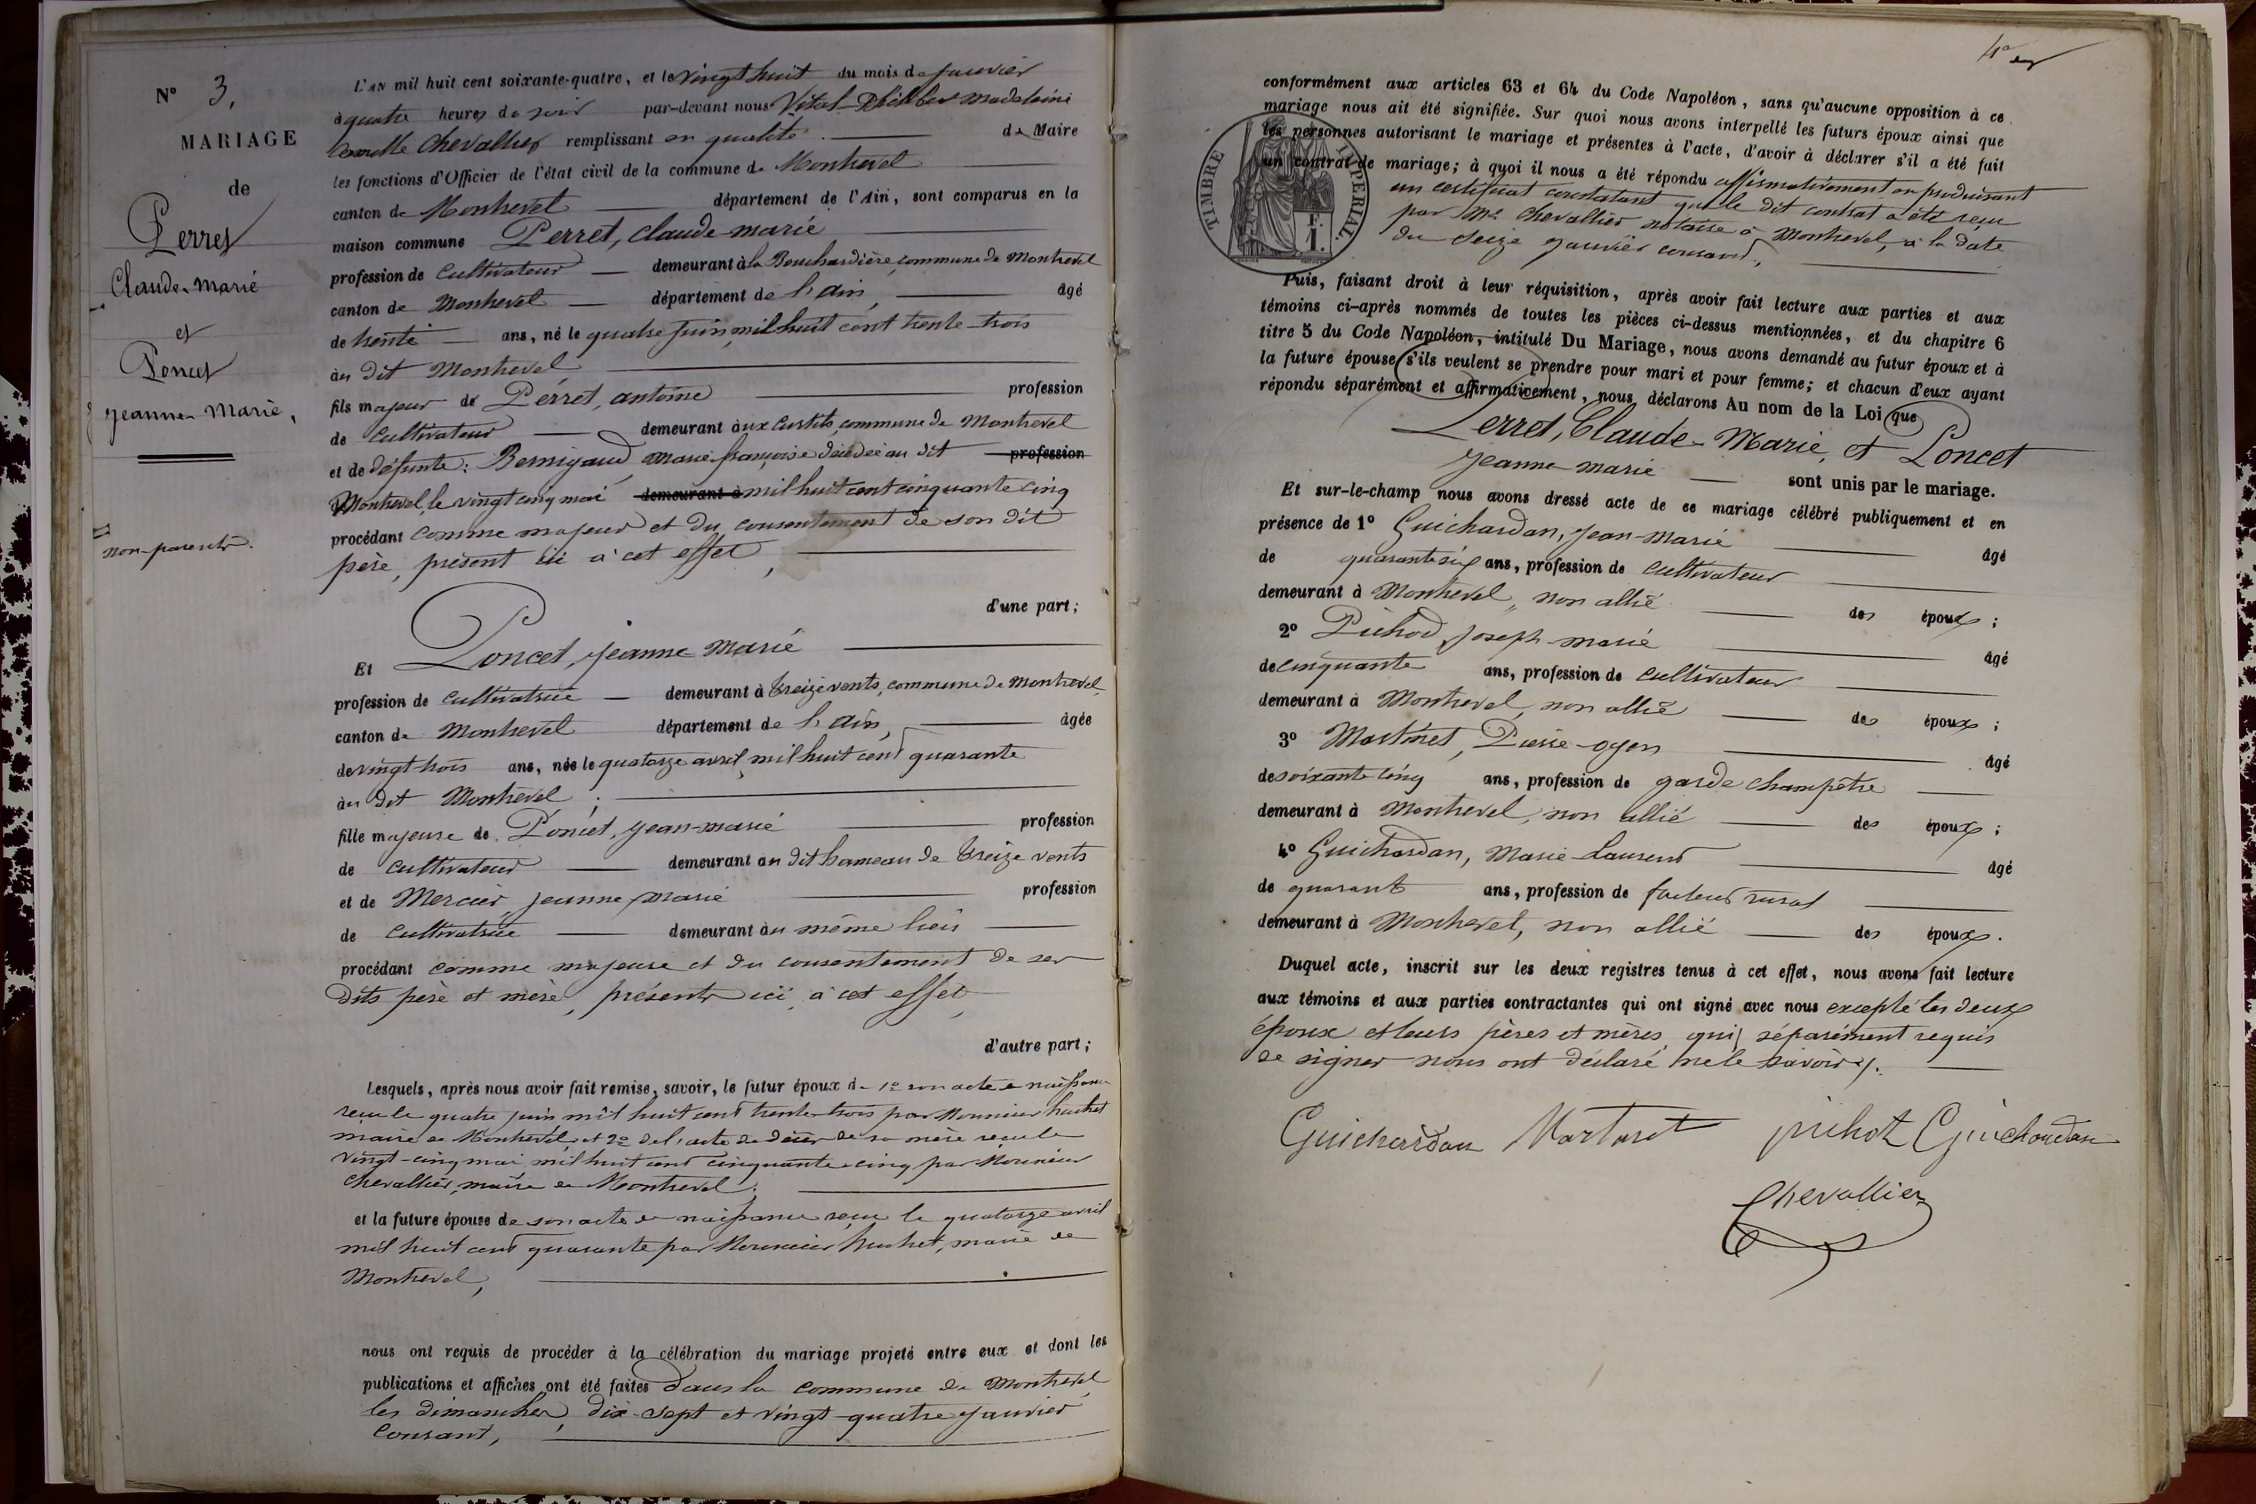 N° 3.
MARIAGE
de
Perret
Claude-Marie
et
Poncet
Jeanne-Marie,
non-parents.
L'AN mil huit cent soixante-quatre, et le vingt huit du mois de Janvier
à quatre heures du soir par-devant nous Vital Philibert Madeleine
Camille Chevallier remplissant en qualité de Maire
les fonctions d'Officier de l'état civil de la commune de Montrevel
canton de Montrevel département de l'Ain, sont comparus en la
maison commune Perret, Claude-Marie
profession de cultivateur demeurant à la Bouchardière, commune de Montrevel
canton de Montrevel département de l'ain, âgé
de trente ans, né le quatre juin, mil huit cent trente-trois
au dit Montrevel
fils majeur de Perret, antoine profession
de cultivateur demeurant aux Curtils, commune de Montrevel
et de défunte: Bernigaud Marie françoise décédée au dit profession
Montrevel, le vingt cinq mai demeurant à mil huit cent cinquante cinq
procédant comme majeur et du consentement de son dit
père, présent ici à cet effet,
d'une part;
Et Poncet, Jeanne Marie
profession de cultivatrice demeurant à Treize vents, commune de Montrevel,
canton de Montrevel département de l'ain, âgée
de vingt trois ans, née le quatorze avril, mil huit cent quarante
au dit Montrevel;
fille majeure de Poncet, Jean-Marie profession
de cultivateur demeurant au dit hameau de Treize vents
et de Mercier, Jeanne Marie profession
de cultivatrice demeurant au même lieu
procédant comme majeure et du consentement de ses
dits père et mère, présents ici, à cet effet,
d'autre part;
Lesquels, après nous avoir fait remise, savoir, le futur époux de 1° son acte de naissance
reçu le quatre juin mil huit cent trente-trois par Monsieur huchet
maire de Montrevel, et 2° de l'acte de décès de sa mère reçu le
vingt-cinq mai mil huit cent cinquante-cinq par Monsieur
Chevallier, maire de Montrevel;
et la future épouse de son acte de naissance reçu le quatorze avril
mil huit cent quarante par Monsieur huchet, maire de
Montrevel,
nous ont requis de procéder à la célébration du mariage projeté entre eux et dont les
publications et affiches ont été faites dans la commune de Montrevel,
les dimanches, dix-sept et vingt-quatre Janvier
courant,
conformément aux articles 63 et 64 du Code Napoléon, sans qu'aucune opposition à ce
mariage nous ait été signifiée. Sur quoi nous avons interpellé les futurs époux ainsi que
les personnes autorisant le mariage et présentes à l'acte, d'avoir à déclarer s'il a été fait
un contrat de mariage; à quoi il nous a été répondu affirmativement en produisant
un certificat constatant que le dit contrat a été reçu
par Me Chevallier notaire à Montrevel, à la date
du seize janvier courant,
TIMBRE IMPERIAL
F.
1.
Puis, faisant droit à leur réquisition, après avoir fait lecture aux parties et aux
témoins ci-après nommés de toutes les pièces ci-dessus mentionnées, et du chapitre 6
titre 5 du Code Napoléon, intitulé Du Mariage, nous avons demandé au futur époux et à
la future épouse s'ils veulent se prendre pour mari et pour femme; et chacun d'eux ayant
répondu séparément et affirmativement, nous déclarons Au nom de la Loi que
Perret, Claude-Marie, et Poncet
Jeanne-Marie sont unis par le mariage.
Et sur-le-champ nous avons dressé acte de ce mariage célébré publiquement et en
présence de 1° Guichardan, Jean-Marie âgé
de quarante six ans, profession de cultivateur
demeurant à Montrevel, non allié des époux;
2° Pichod, Joseph-marie âgé
de cinquante ans, profession de cultivateur
demeurant à Montrevel, non allié des époux;
3° Martinet, Pierre-oyen âgé
de soixante cinq ans, profession de garde champêtre
demeurant à Montrevel, non allié des époux;
4° Guichardan, Marie-Laurent âgé
de quarante ans, profession de facteur rural
demeurant à Montrevel, non allié des époux.
Duquel acte, inscrit sur les deux registres tenus à cet effet, nous avons fait lecture
aux témoins et aux parties contractantes qui ont signé avec nous excepté les deux
époux et leurs pères et mères, qui séparément requis
de signer nous ont déclaré ne le savoir.
Guichardan Martinet pichot Guichardan
Chevallier